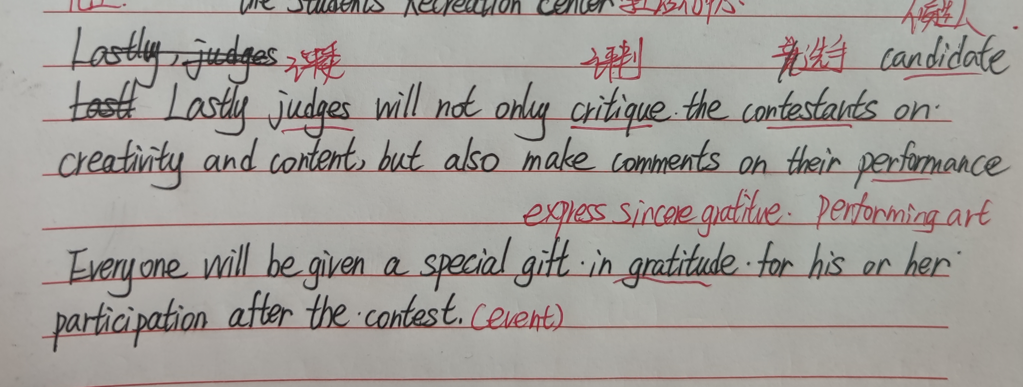 the Students Recreation Center
候选人
Lastly, judges 评委 评判 竞选手 candidate
Lastly judges will not only critique the contestants on
creativity and content, but also make comments on their performance
express sincere gratitue. Performing art
Everyone will be given a special gift in gratitude for his or her
participation after the contest. (event)